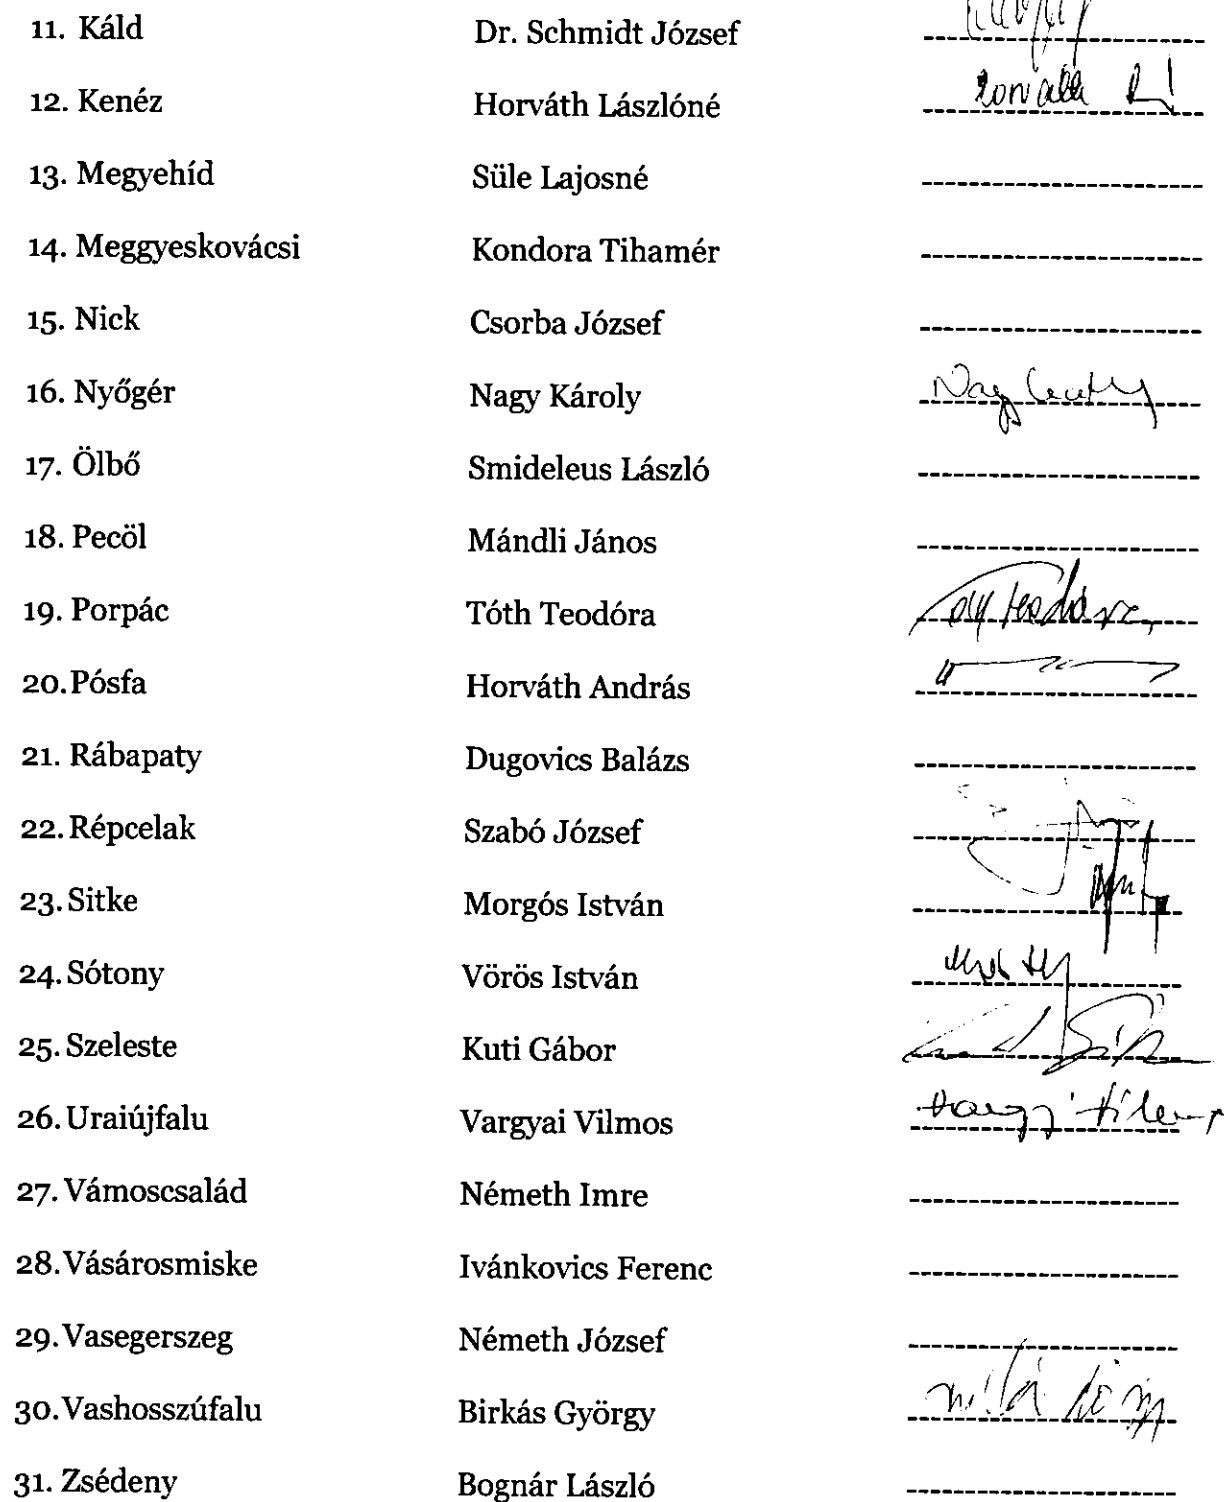 11. Káld Dr. Schmidt József
12. Kenéz Horváth Lászlóné
13. Megyehíd Süle Lajosné
14. Meggyeskovácsi Kondora Tihamér
15. Nick Csorba József
16. Nyőgér Nagy Károly
17. Ölbő Smideleus László
18. Pecöl Mándli János
19. Porpác Tóth Teodóra
20. Pósfa Horváth András
21. Rábapaty Dugovics Balázs
22. Répcelak Szabó József
23. Sitke Morgós István
24. Sótony Vörös István
25. Szeleste Kuti Gábor
26. Uraiújfalu Vargyai Vilmos
27. Vámoscsalád Németh Imre
28. Vásárosmiske Ivánkovics Ferenc
29. Vasegerszeg Németh József
30. Vashosszúfalu Birkás György
31. Zsédeny Bognár László